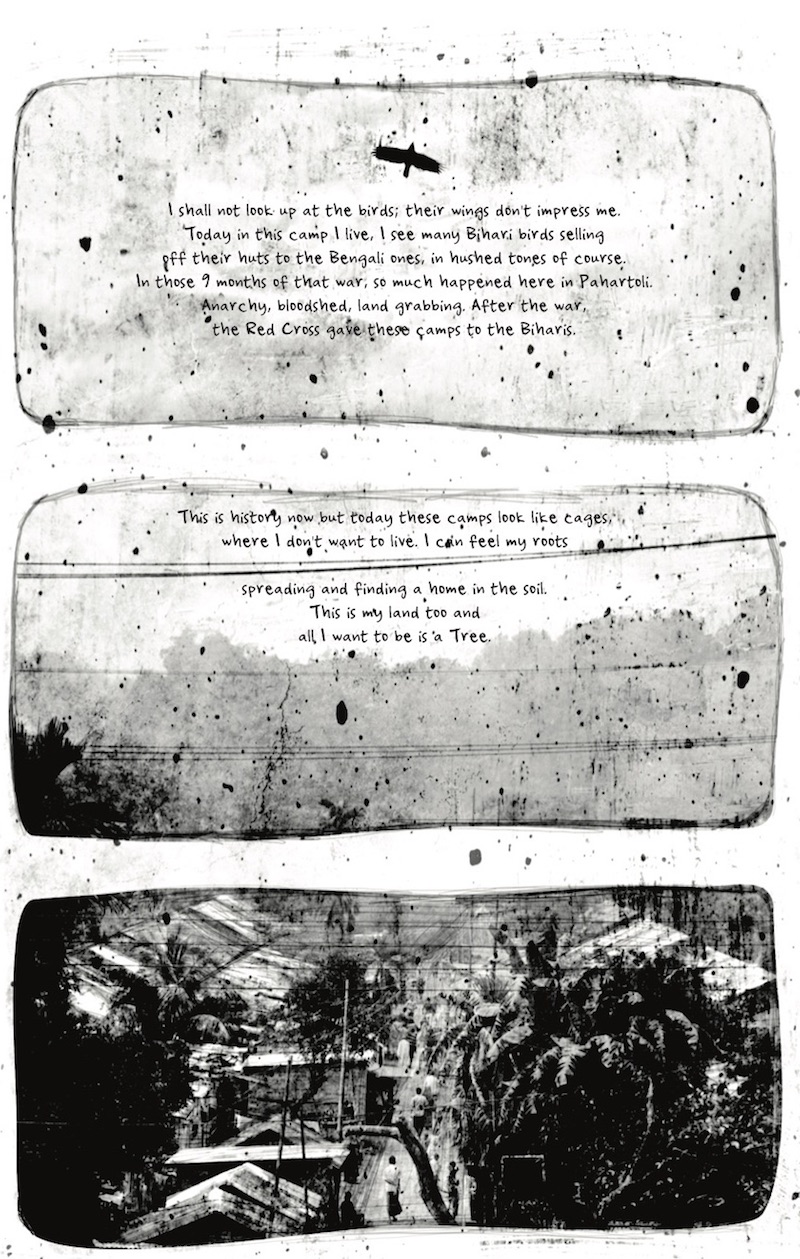 I shall not look up at the birds; their wings don't impress me.
Today in this camp I live, I see many Bihari birds selling
off their huts to the Bengali ones, in hushed tones of course.
In those 9 months of that war, so much happened here in Pahartoli.
Anarchy, bloodshed, land grabbing. After the war,
the Red Cross gave these camps to the Biharis.
This is history now but today these camps look like cages,
where I don't want to live. I can feel my roots
spreading and finding a home in the soil.
This is my land too and
all I want to be is a Tree.